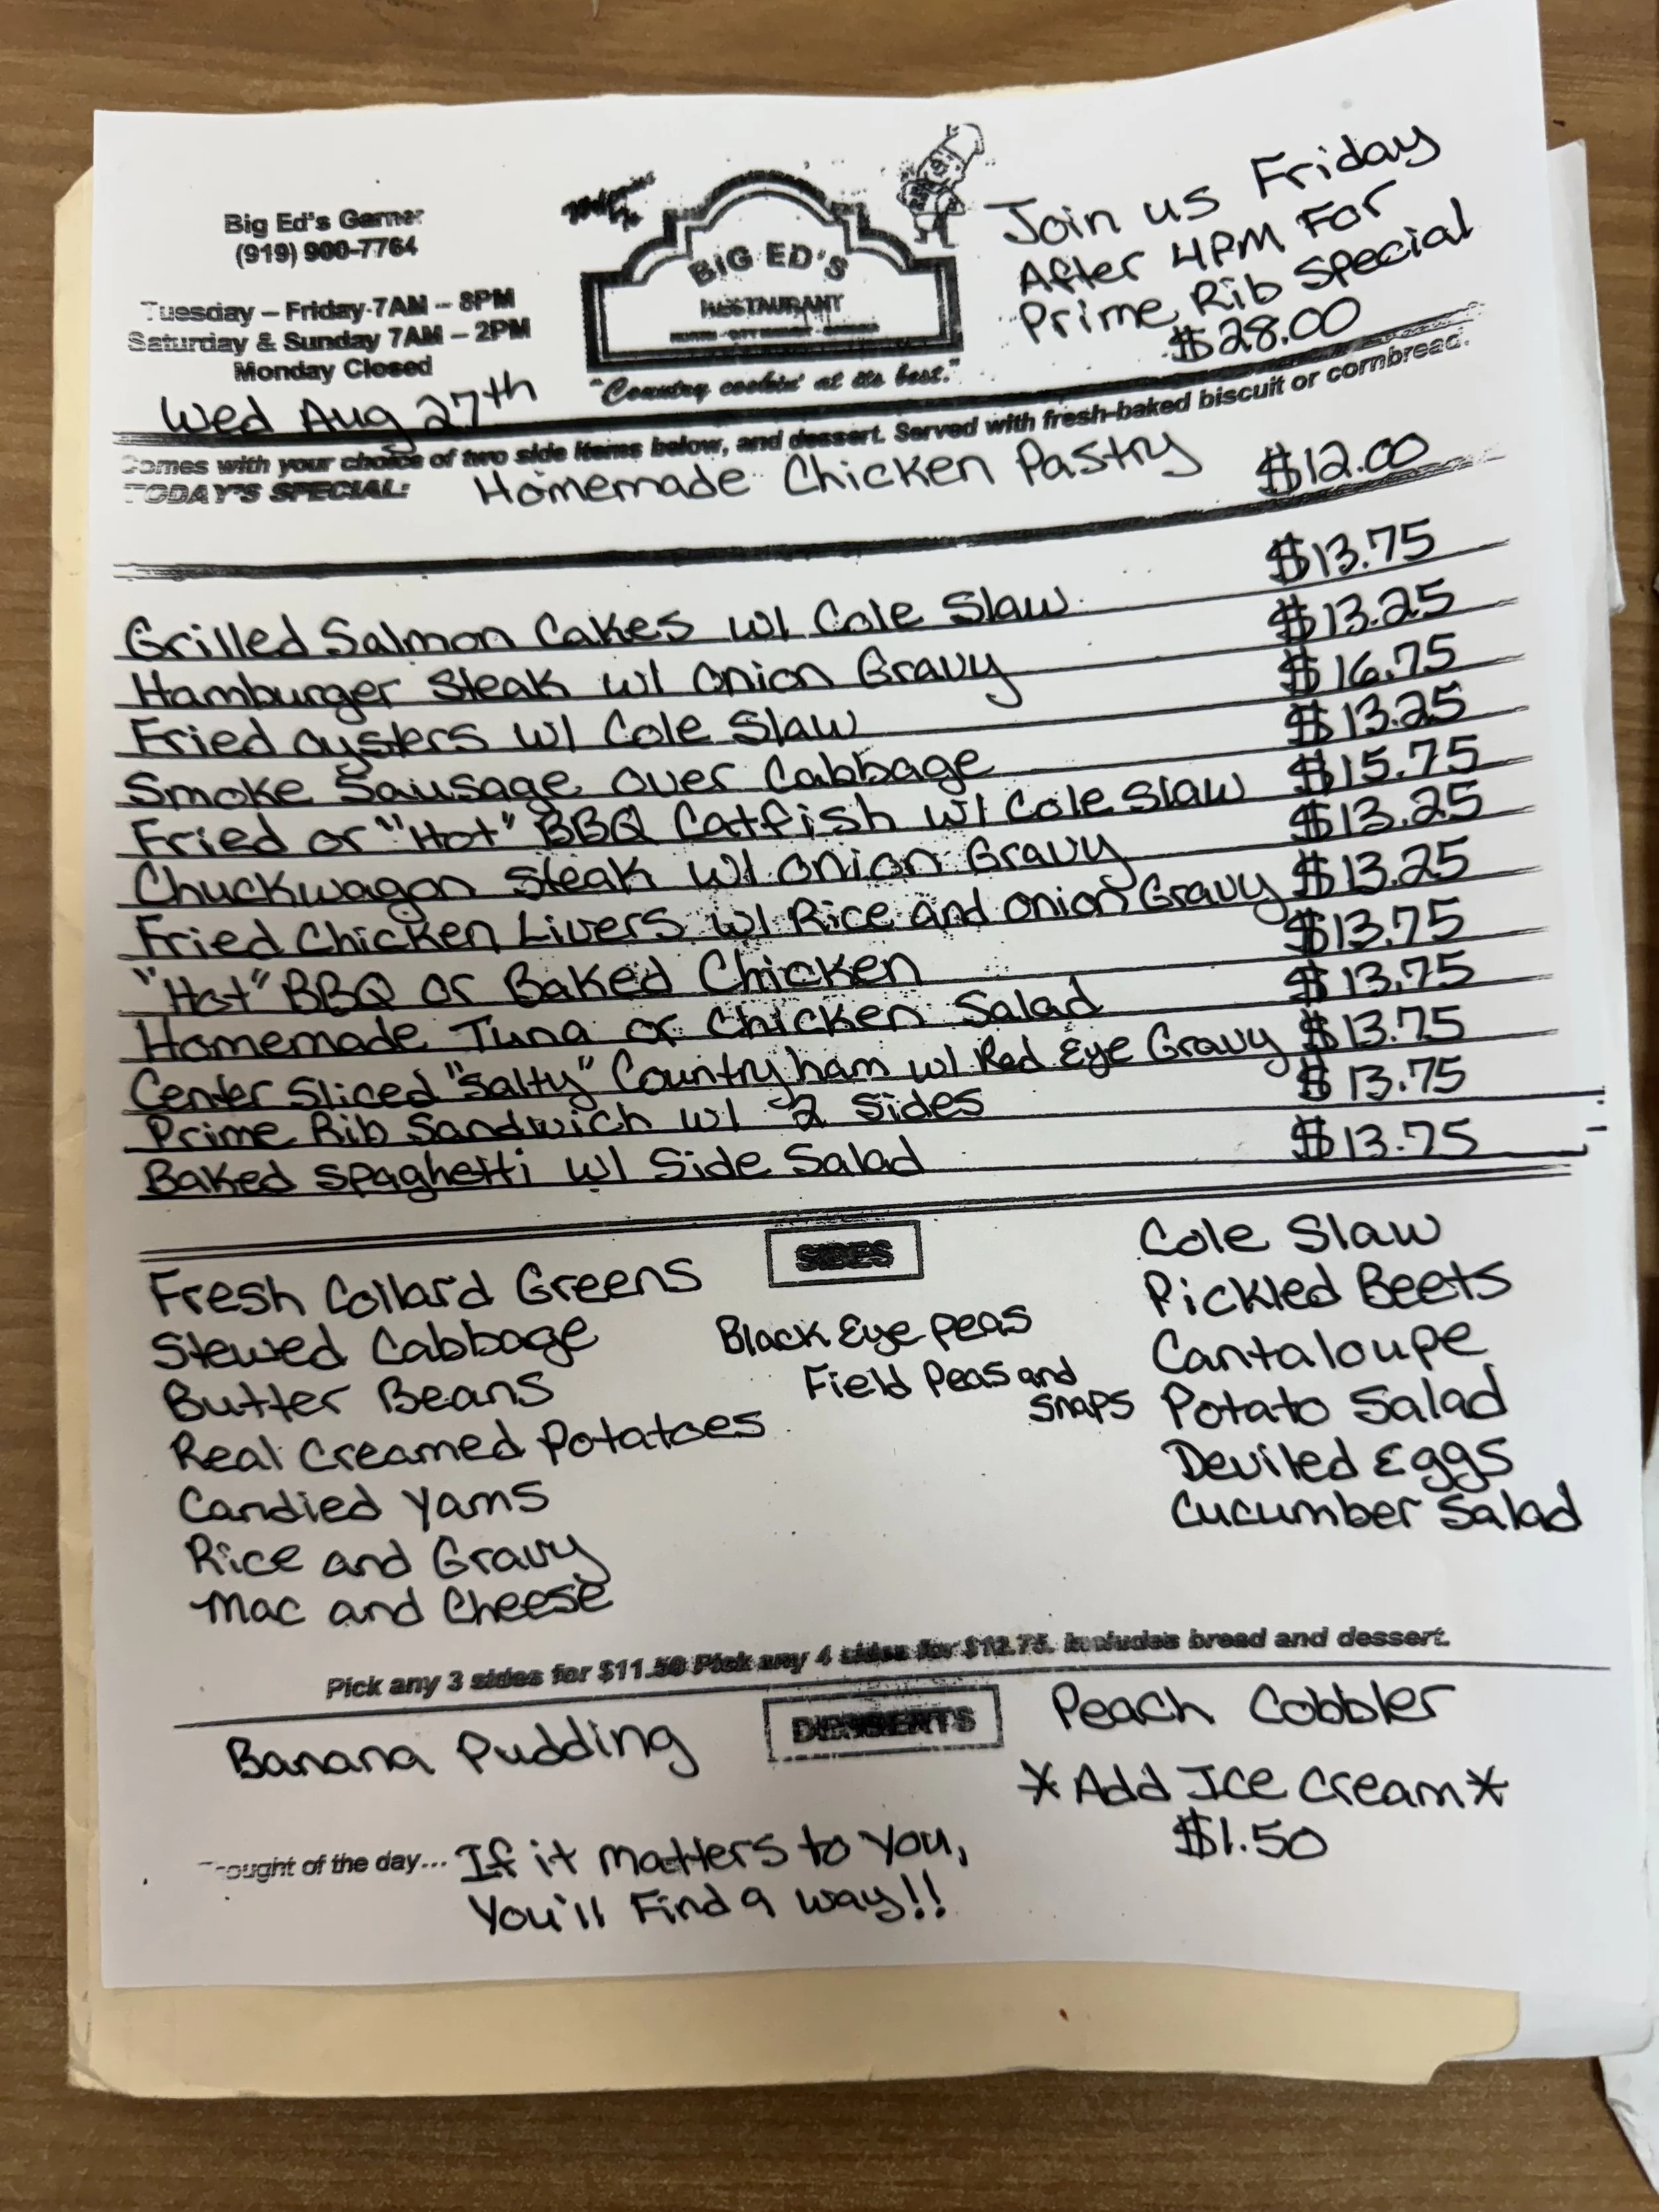 Big Ed's Garner
(919) 900-7764
Tuesday – Friday 7AM – 8PM
Saturday & Sunday 7AM – 2PM
Monday Closed
Wed Aug 27th
BIG ED'S
RESTAURANT
"Country cookin' at its best."
Join us Friday
After 4PM For
Prime Rib Special
$28.00
Comes with your choice of two side items below, and dessert. Served with fresh-baked biscuit or cornbread.
TODAY'S SPECIAL: Homemade Chicken Pastry $12.00
Grilled Salmon Cakes w/ Cole Slaw $13.75
Hamburger Steak w/ Onion Gravy $13.25
Fried Oysters w/ Cole Slaw $16.75
Smoke Sausage over Cabbage $13.25
Fried or "Hot" BBQ Catfish w/ Cole Slaw $15.75
Chuckwagon Steak w/ Onion Gravy $13.25
Fried Chicken Livers w/ Rice and Onion Gravy $13.25
"Hot" BBQ or Baked Chicken $13.75
Homemade Tuna or Chicken Salad $13.75
Center Sliced "Salty" Country ham w/ Red Eye Gravy $13.75
Prime Rib Sandwich w/ 2 Sides $13.75
Baked Spaghetti w/ Side Salad $13.75
SIDES
Fresh Collard Greens
Stewed Cabbage
Butter Beans
Real Creamed Potatoes
Candied Yams
Rice and Gravy
Mac and Cheese
Black Eye Peas
Field Peas and
Snaps
Cole Slaw
Pickled Beets
Cantaloupe
Potato Salad
Deviled Eggs
Cucumber Salad
Pick any 3 sides for $11.50 Pick any 4 sides for $12.75. Includes bread and dessert.
DESSERTS
Banana Pudding
Peach Cobbler
*Add Ice Cream*
$1.50
ought of the day... If it matters to you,
You'll Find a way!!